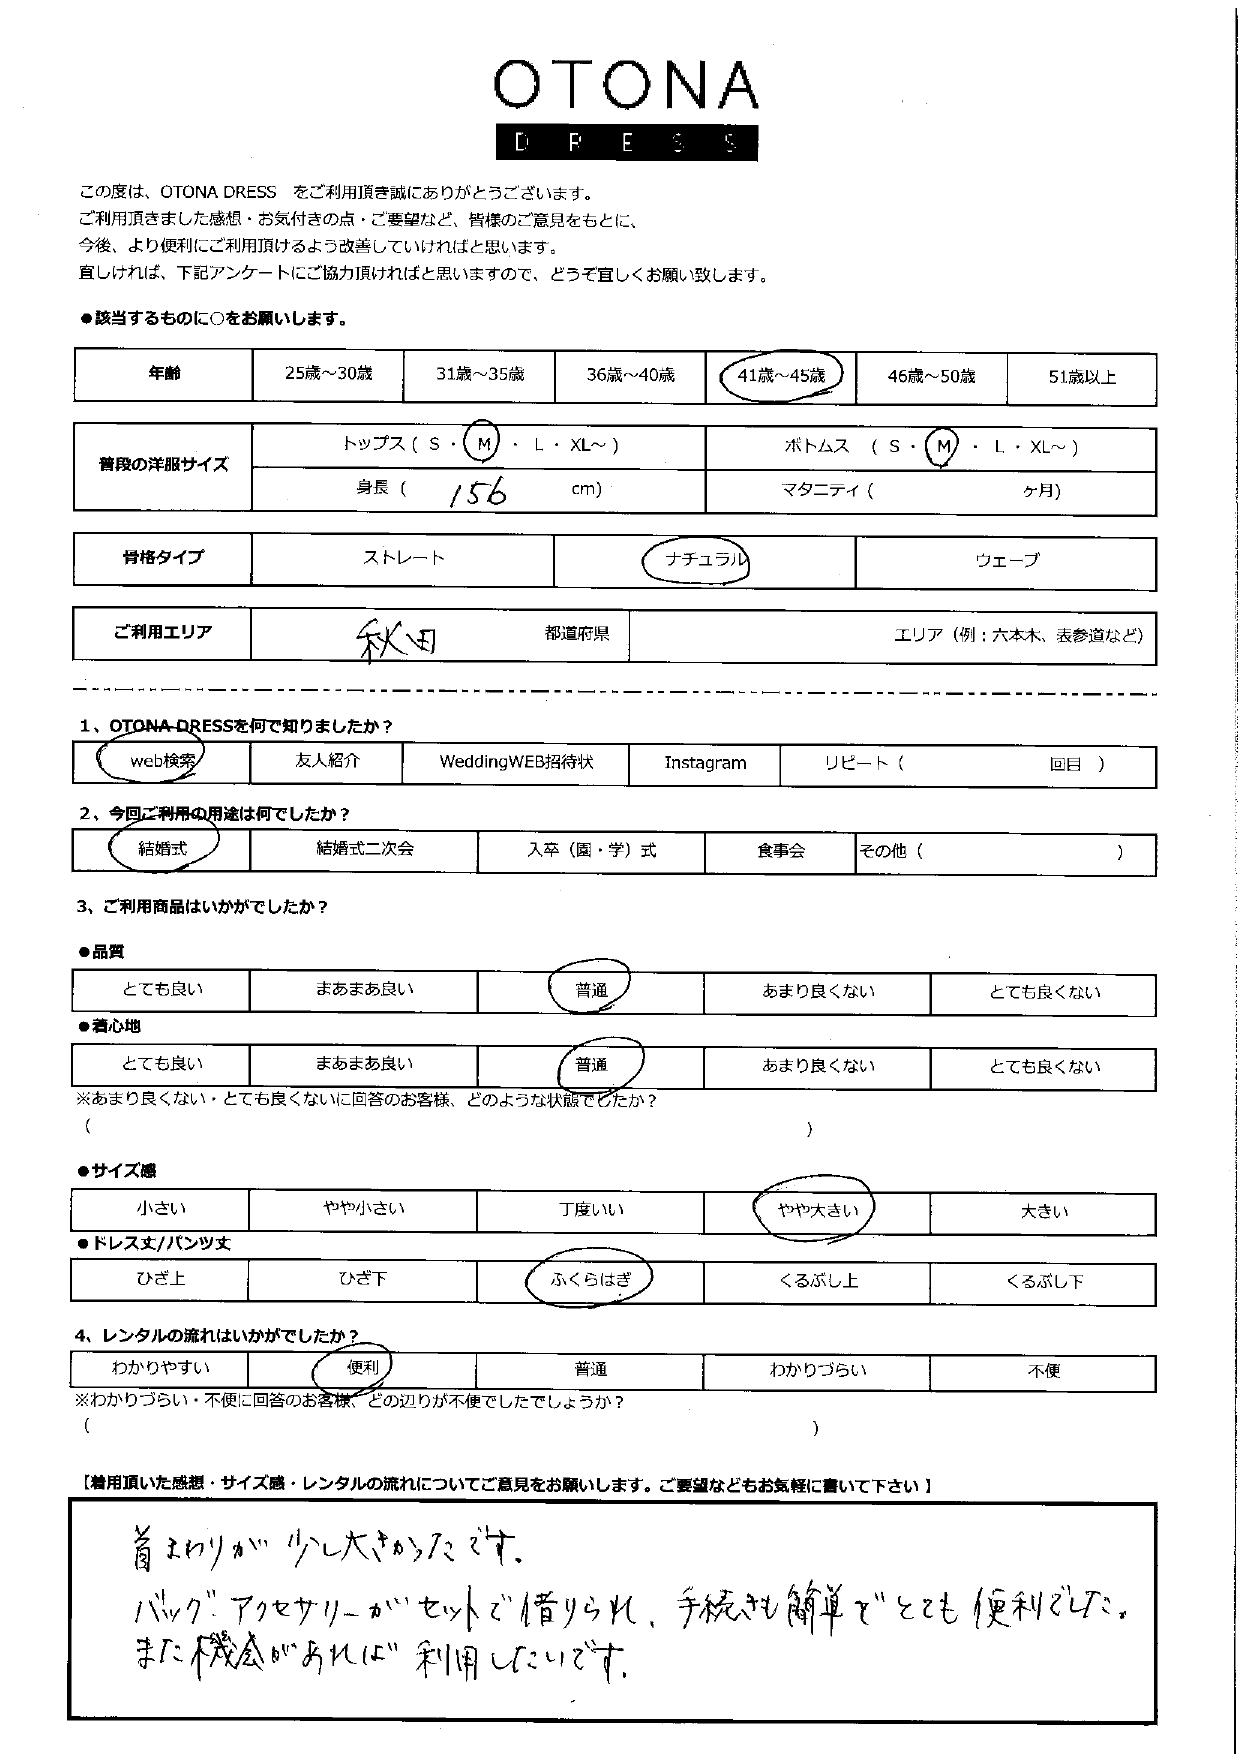 OTONA
DRESS
この度は、OTONA DRESS　をご利用頂き誠にありがとうございます。
ご利用頂きました感想・お気付きの点・ご要望など、皆様のご意見をもとに、
今後、より便利にご利用頂けるよう改善していければと思います。
宜しければ、下記アンケートにご協力頂ければと思いますので、どうぞ宜しくお願い致します。
●該当するものに○をお願いします。
年齢 25歳～30歳 31歳～35歳 36歳～40歳 41歳～45歳 46歳～50歳 51歳以上
普段の洋服サイズ トップス ( S ・ M ・ L ・ XL～ ) ボトムス ( S ・ M ・ L ・ XL～ )
身長 ( 156 cm) マタニティ ( ヶ月)
骨格タイプ ストレート ナチュラル ウェーブ
ご利用エリア 秋田 都道府県 エリア（例：六本木、表参道など）
1、OTONA DRESSを何で知りましたか？
web検索 友人紹介 WeddingWEB招待状 Instagram リピート ( 回目 )
2、今回ご利用の用途は何でしたか？
結婚式 結婚式二次会 入卒（園・学）式 食事会 その他 ( )
3、ご利用商品はいかがでしたか？
●品質
とても良い まあまあ良い 普通 あまり良くない とても良くない
●着心地
とても良い まあまあ良い 普通 あまり良くない とても良くない
※あまり良くない・とても良くないに回答のお客様、どのような状態でしたか？
( )
●サイズ感
小さい やや小さい 丁度いい やや大きい 大きい
●ドレス丈/パンツ丈
ひざ上 ひざ下 ふくらはぎ くるぶし上 くるぶし下
4、レンタルの流れはいかがでしたか？
わかりやすい 便利 普通 わかりづらい 不便
※わかりづらい・不便に回答のお客様、どの辺りが不便でしたでしょうか？
( )
【着用頂いた感想・サイズ感・レンタルの流れについてご意見をお願いします。ご要望などもお気軽に書いて下さい】
首まわりが少し大きかったです。
バッグ・アクセサリーがセットで借りられ、手続きも簡単でとても便利でした。
また機会があれば利用したいです。